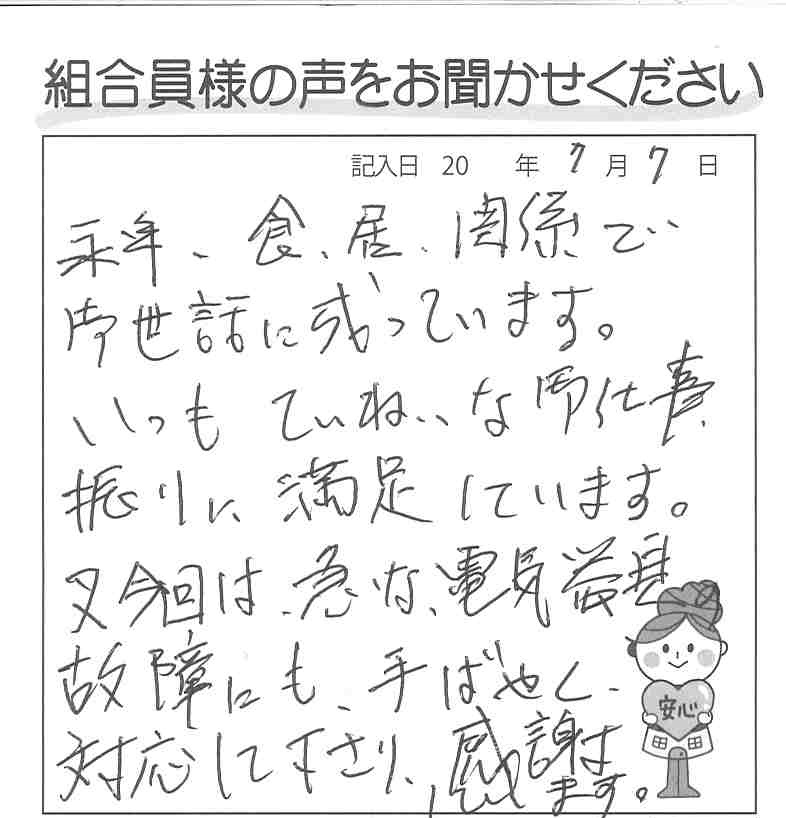 組合員様の声をお聞かせください
記入日 20 年 7月7日
永年、食、居、関係で
御世話に成っています。
いつもていねいな御仕事
振りに満足しています。
又今回は、急な、電気器具
故障にも、手ばやく、
対応して下さり、感謝
します。
安心